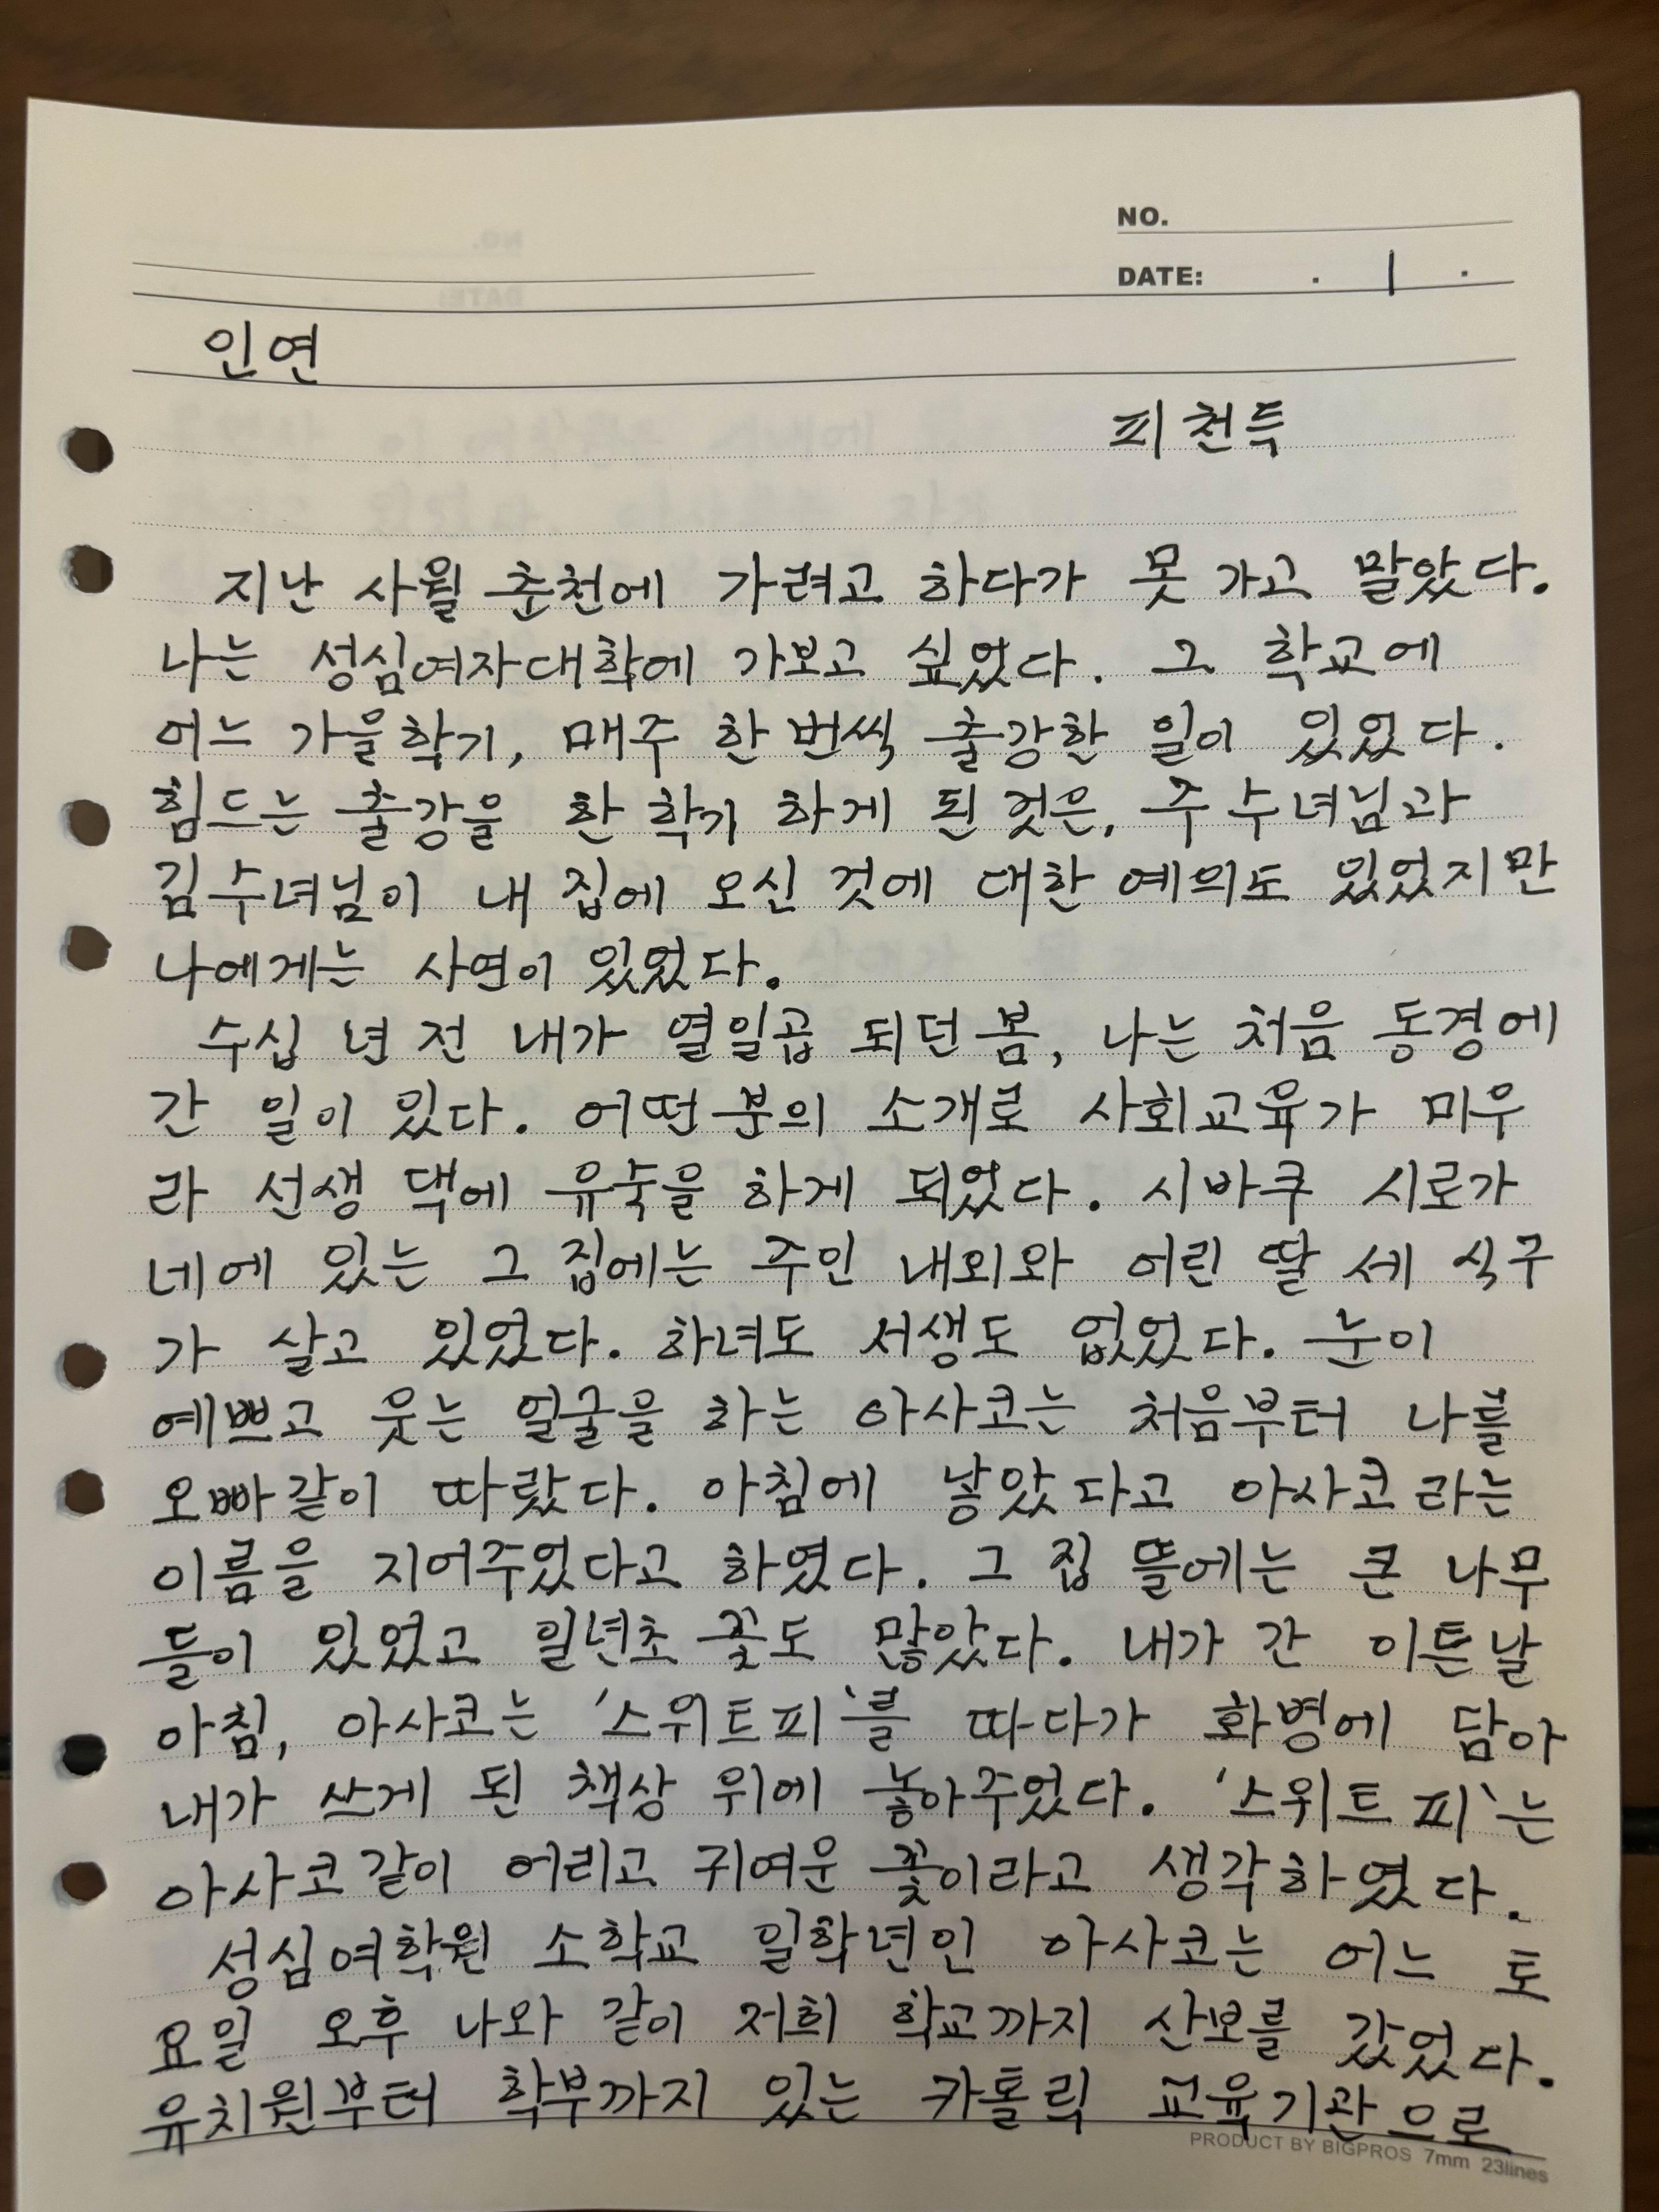 NO.
DATE: . | .
인연
피천득
지난 사월 춘천에 가려고 하다가 못 가고 말았다.
나는 성심여자대학에 가보고 싶었다. 그 학교에
어느 가을학기, 매주 한 번씩 출강한 일이 있었다.
힘드는 출강을 한 학기 하게 된 것은, 주 수녀님과
김수녀님이 내 집에 오신 것에 대한 예의도 있었지만
나에게는 사연이 있었다.
수십 년 전 내가 열일곱 되던 봄, 나는 처음 동경에
간 일이 있다. 어떤 분의 소개로 사회교육가 미우
라 선생 댁에 유숙을 하게 되었다. 시바쿠 시로가
네에 있는 그 집에는 주인 내외와 어린 딸 세 식구
가 살고 있었다. 하녀도 서생도 없었다. 눈이
예쁘고 웃는 얼굴을 하는 아사코는 처음부터 나를
오빠같이 따랐다. 아침에 낳았다고 아사코라는
이름을 지어주었다고 하였다. 그 집 뜰에는 큰 나무
들이 있었고 일년초 꽃도 많았다. 내가 간 이튿날
아침, 아사코는 '스위트피'를 따다가 화병에 담아
내가 쓰게 된 책상 위에 놓아주었다. '스위트피'는
아사코같이 어리고 귀여운 꽃이라고 생각하였다.
성심여학원 소학교 일학년인 아사코는 어느 토
요일 오후 나와 같이 저희 학교까지 산보를 갔었다.
유치원부터 학부까지 있는 카톨릭 교육기관으로
PRODUCT BY BIGPROS 7mm 23lines